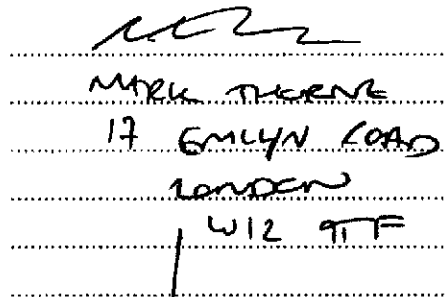 MARK THORNE
17 EMLYN ROAD
LONDON
W12 9TF